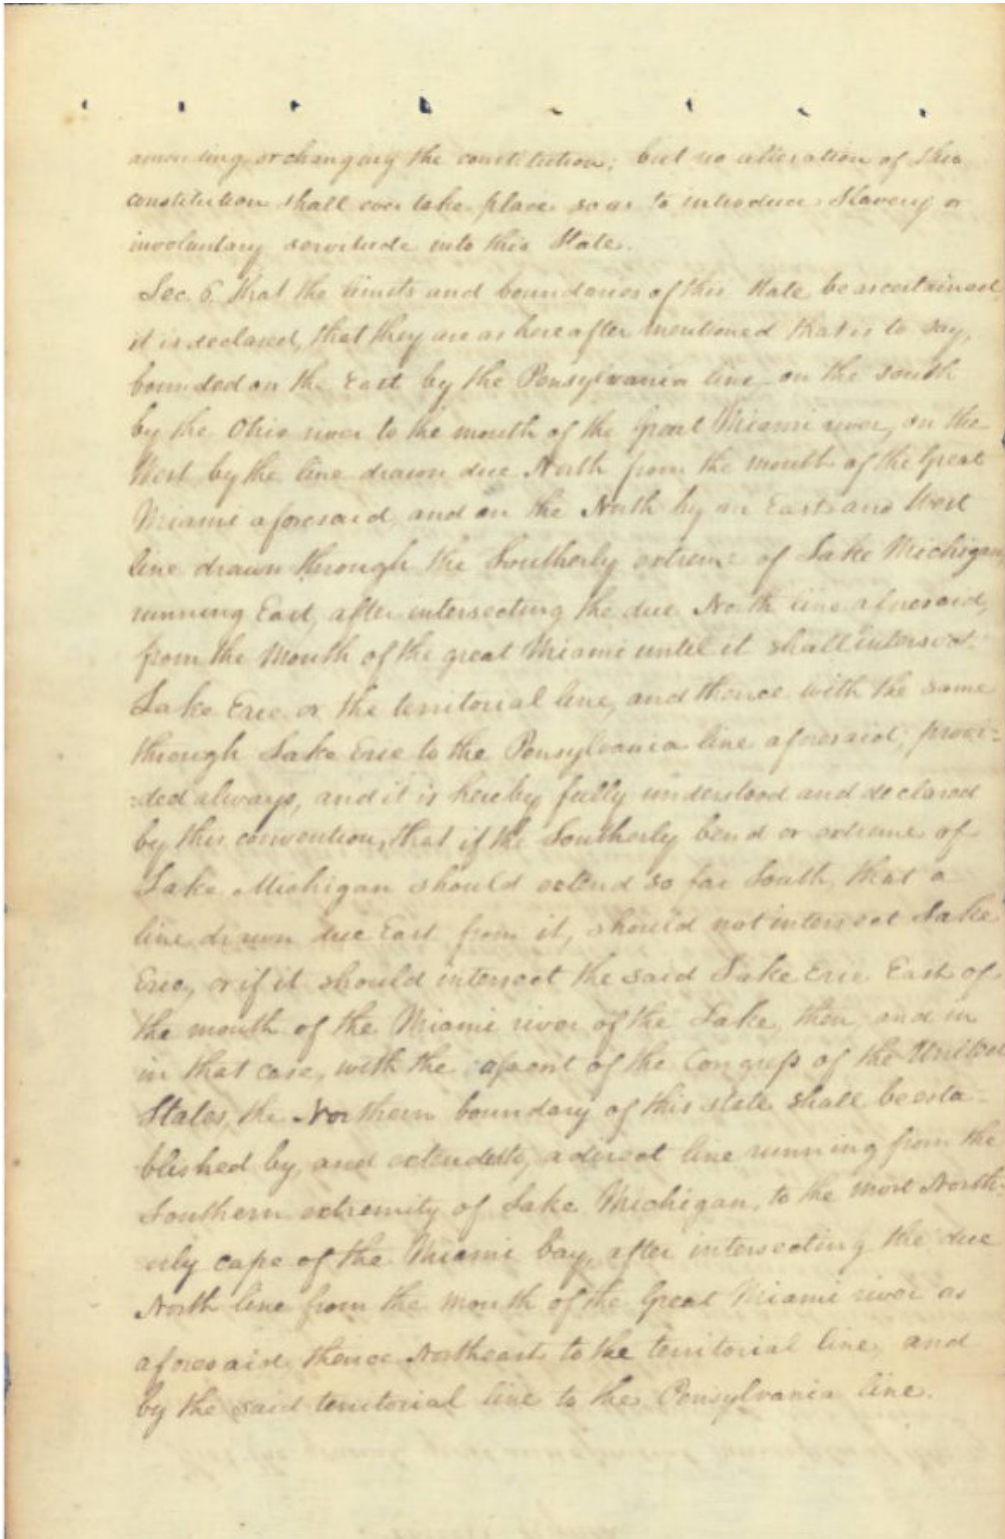 amending, or changing the constitution; but no alteration of this
constitution shall ever take place so as to introduce Slavery or
involuntary servitude into this State.
Sec. 6. That the limits and boundaries of this State be ascertained
it is declared, that they are as hereafter mentioned that is to say,
bounded on the East by the Pensylvania line, on the south
by the Ohio river to the mouth of the Great Miami river, on the
West by the line drawn due North from the mouth of the Great
Miami aforesaid, and on the North by an East and West
line drawn through the Southerly extreme of Lake Michigan,
running East, after intersecting the due North line aforesaid,
from the Mouth of the great Miami until it shall intersect
Lake Erie or the territorial line, and thence with the same
through Lake Erie to the Pensylvania line aforesaid; provi=
=ded always, and it is hereby fully understood and declared
by this convention, that if the Southerly bend or extreme of
Lake Michigan should extend so far South, that a
line drawn due East from it, should not intersect Lake
Erie, or if it should intersect the said Lake Erie East of
the mouth of the Miami river of the Lake, then and in
in that case, with the assent of the Congress of the United
States, the Northern boundary of this state shall be esta=
blished by, and extended to, a direct line running from the
Southern extremity of Lake Michigan, to the most North=
erly cape of the Miami bay, after intersecting the due
North line from the mouth of the Great Miami river as
aforesaid, thence Northeast to the territorial line, and
by the said territorial line to the Pensylvania line.